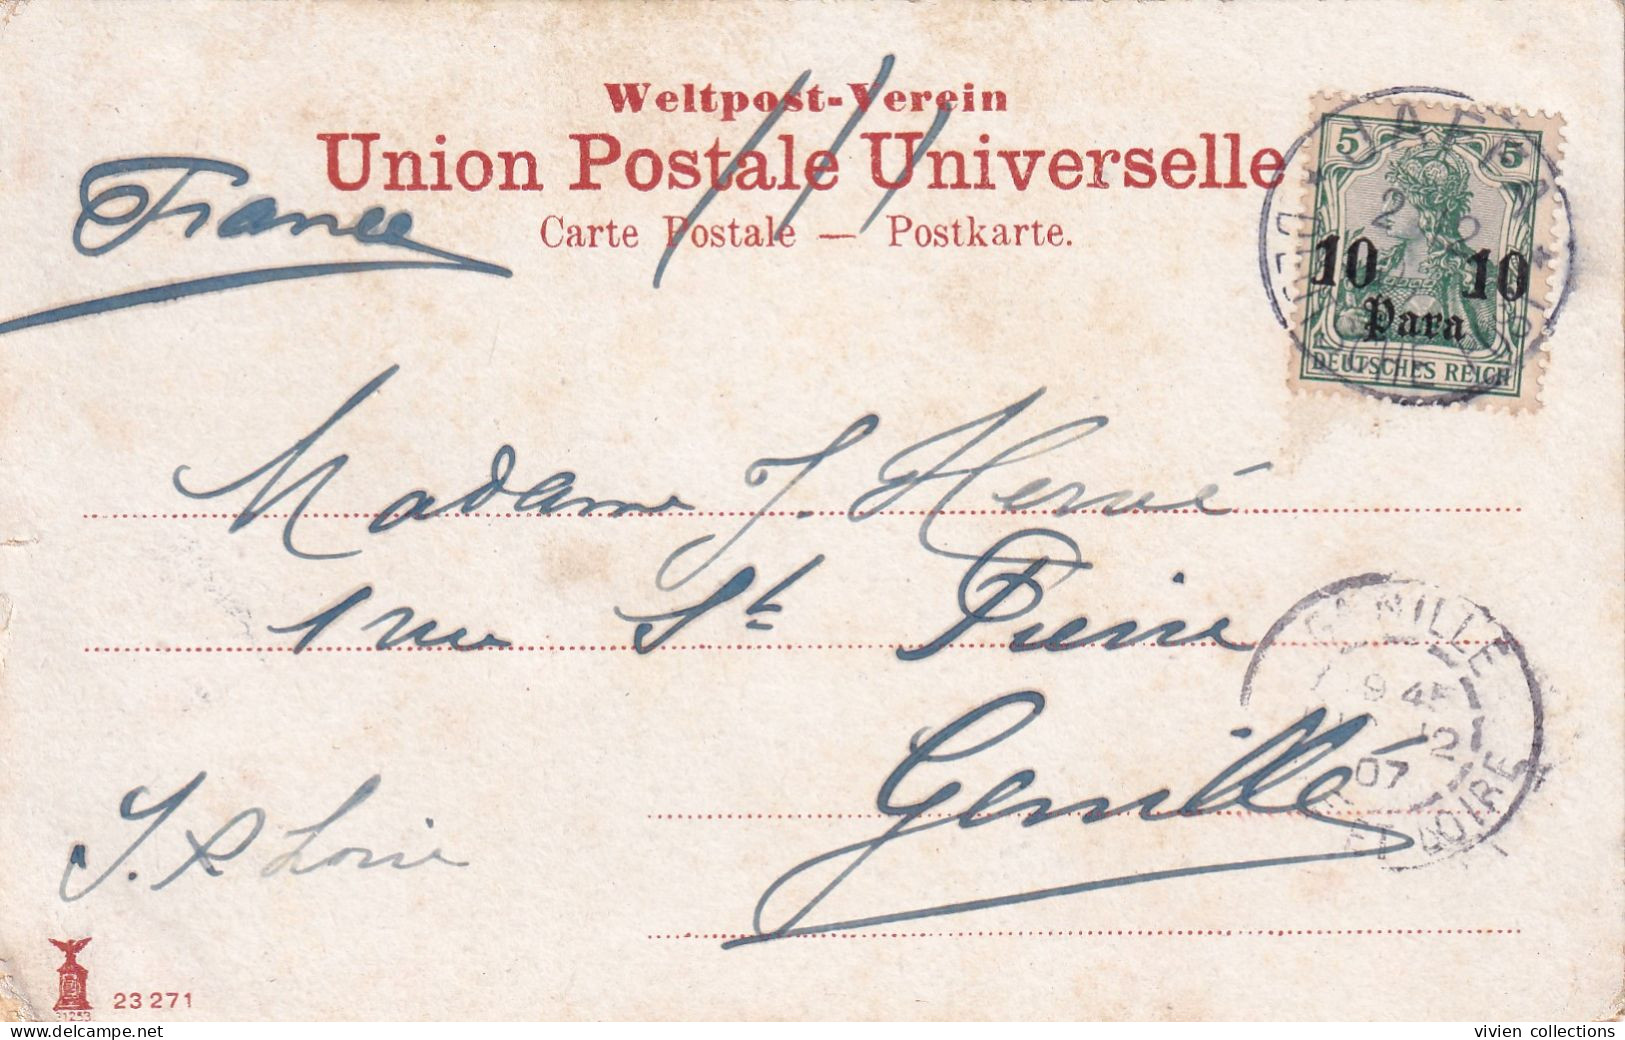 Weltpost-Verein
Union Postale Universelle
Carte Postale — Postkarte.
France
5 5
10 10
Para
DEUTSCHES REICH
JAFFA
DEUTSCHE POST
Madame J. Hervé
1 rue St Pierre
Genillé
I. & Loire
GENILLÉ
9 45
12
07
ET LOIRE
23 271
31253
vivien collections